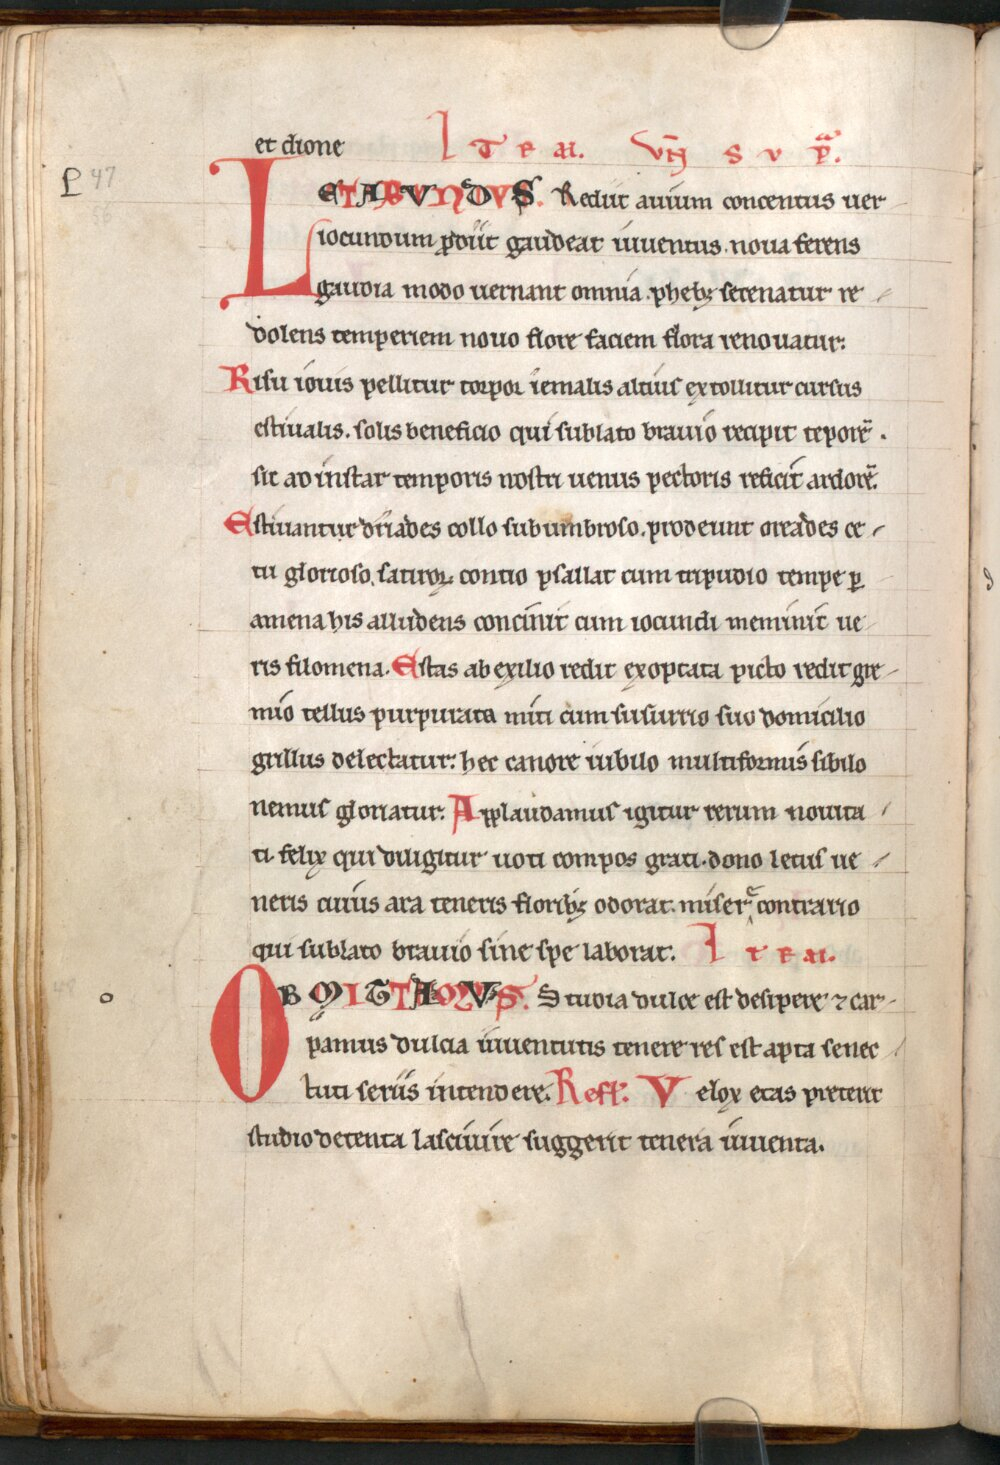 et dione Item. Vñ s u pᵃ.
P 47
LETABUNDUS. Rediit auium concentus uer
iocundum ꝓdiit gaudeat iuuentus. noua ferens
gaudia modo uernant omnia. pheb; serenatur re
dolens temperiem nouo flore faciem flora renouatur.
Risu iouis pellitur torpor iemalis altius extollitur cursus
estiualis. solis beneficio qui sublato brauio recipit teporē.
sic ad instar temporis nostri uenus pectoris reficit ardorē.
Estiuantur driades collo sub umbroso. prodeunt oreades ce
tu glorioso. satiroꝝ contio psallat cum tripudio tempe ꝑ
amena his alludens concinit cum iocundi meminit ue
ris filomena. Estas ab exilio redit exoptata picto redit gre
mio tellus purpurata miti cum susurrio suo domicilio
grillus delectatur. hec canore iubilo multiformis sibilo
nemus gloriatur. Applaudamus igitur rerum nouita
ti. felix qui diligitur uoti compos grati. dono letus ue
neris cuius ara teneris florib; odorat. miser e contrario
qui sublato brauio sine spe laborat. Item.
o
OBMITTAMUS. Studia dulce est desipere ⁊ car
pamus dulcia iuuentutis tenere res est apta senec
tuti seriis intendere. Refł. Velox etas preterit
studio detenta lasciuire suggerit tenera iuuenta.